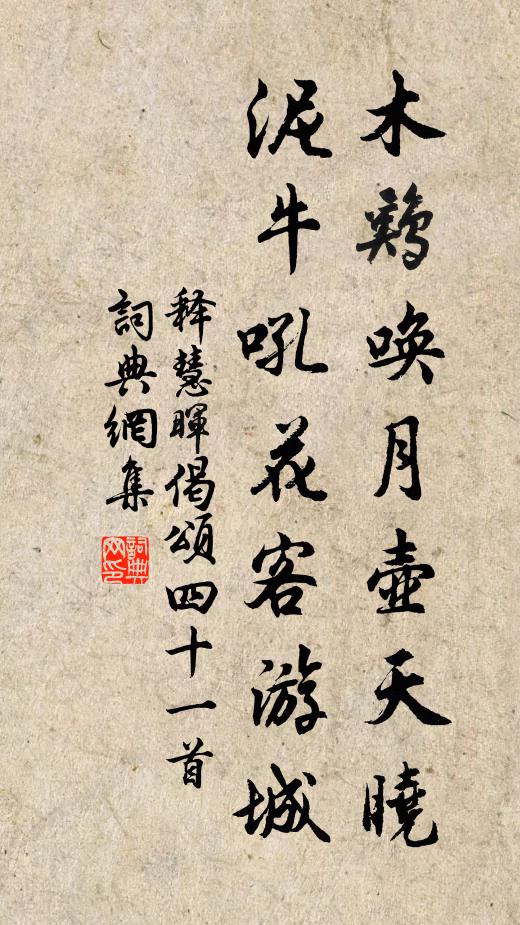 木鷄唤月壺天曉
泥牛吼花客游城
释慧暉偈頌四十一首
詞典網集
詞典
网印